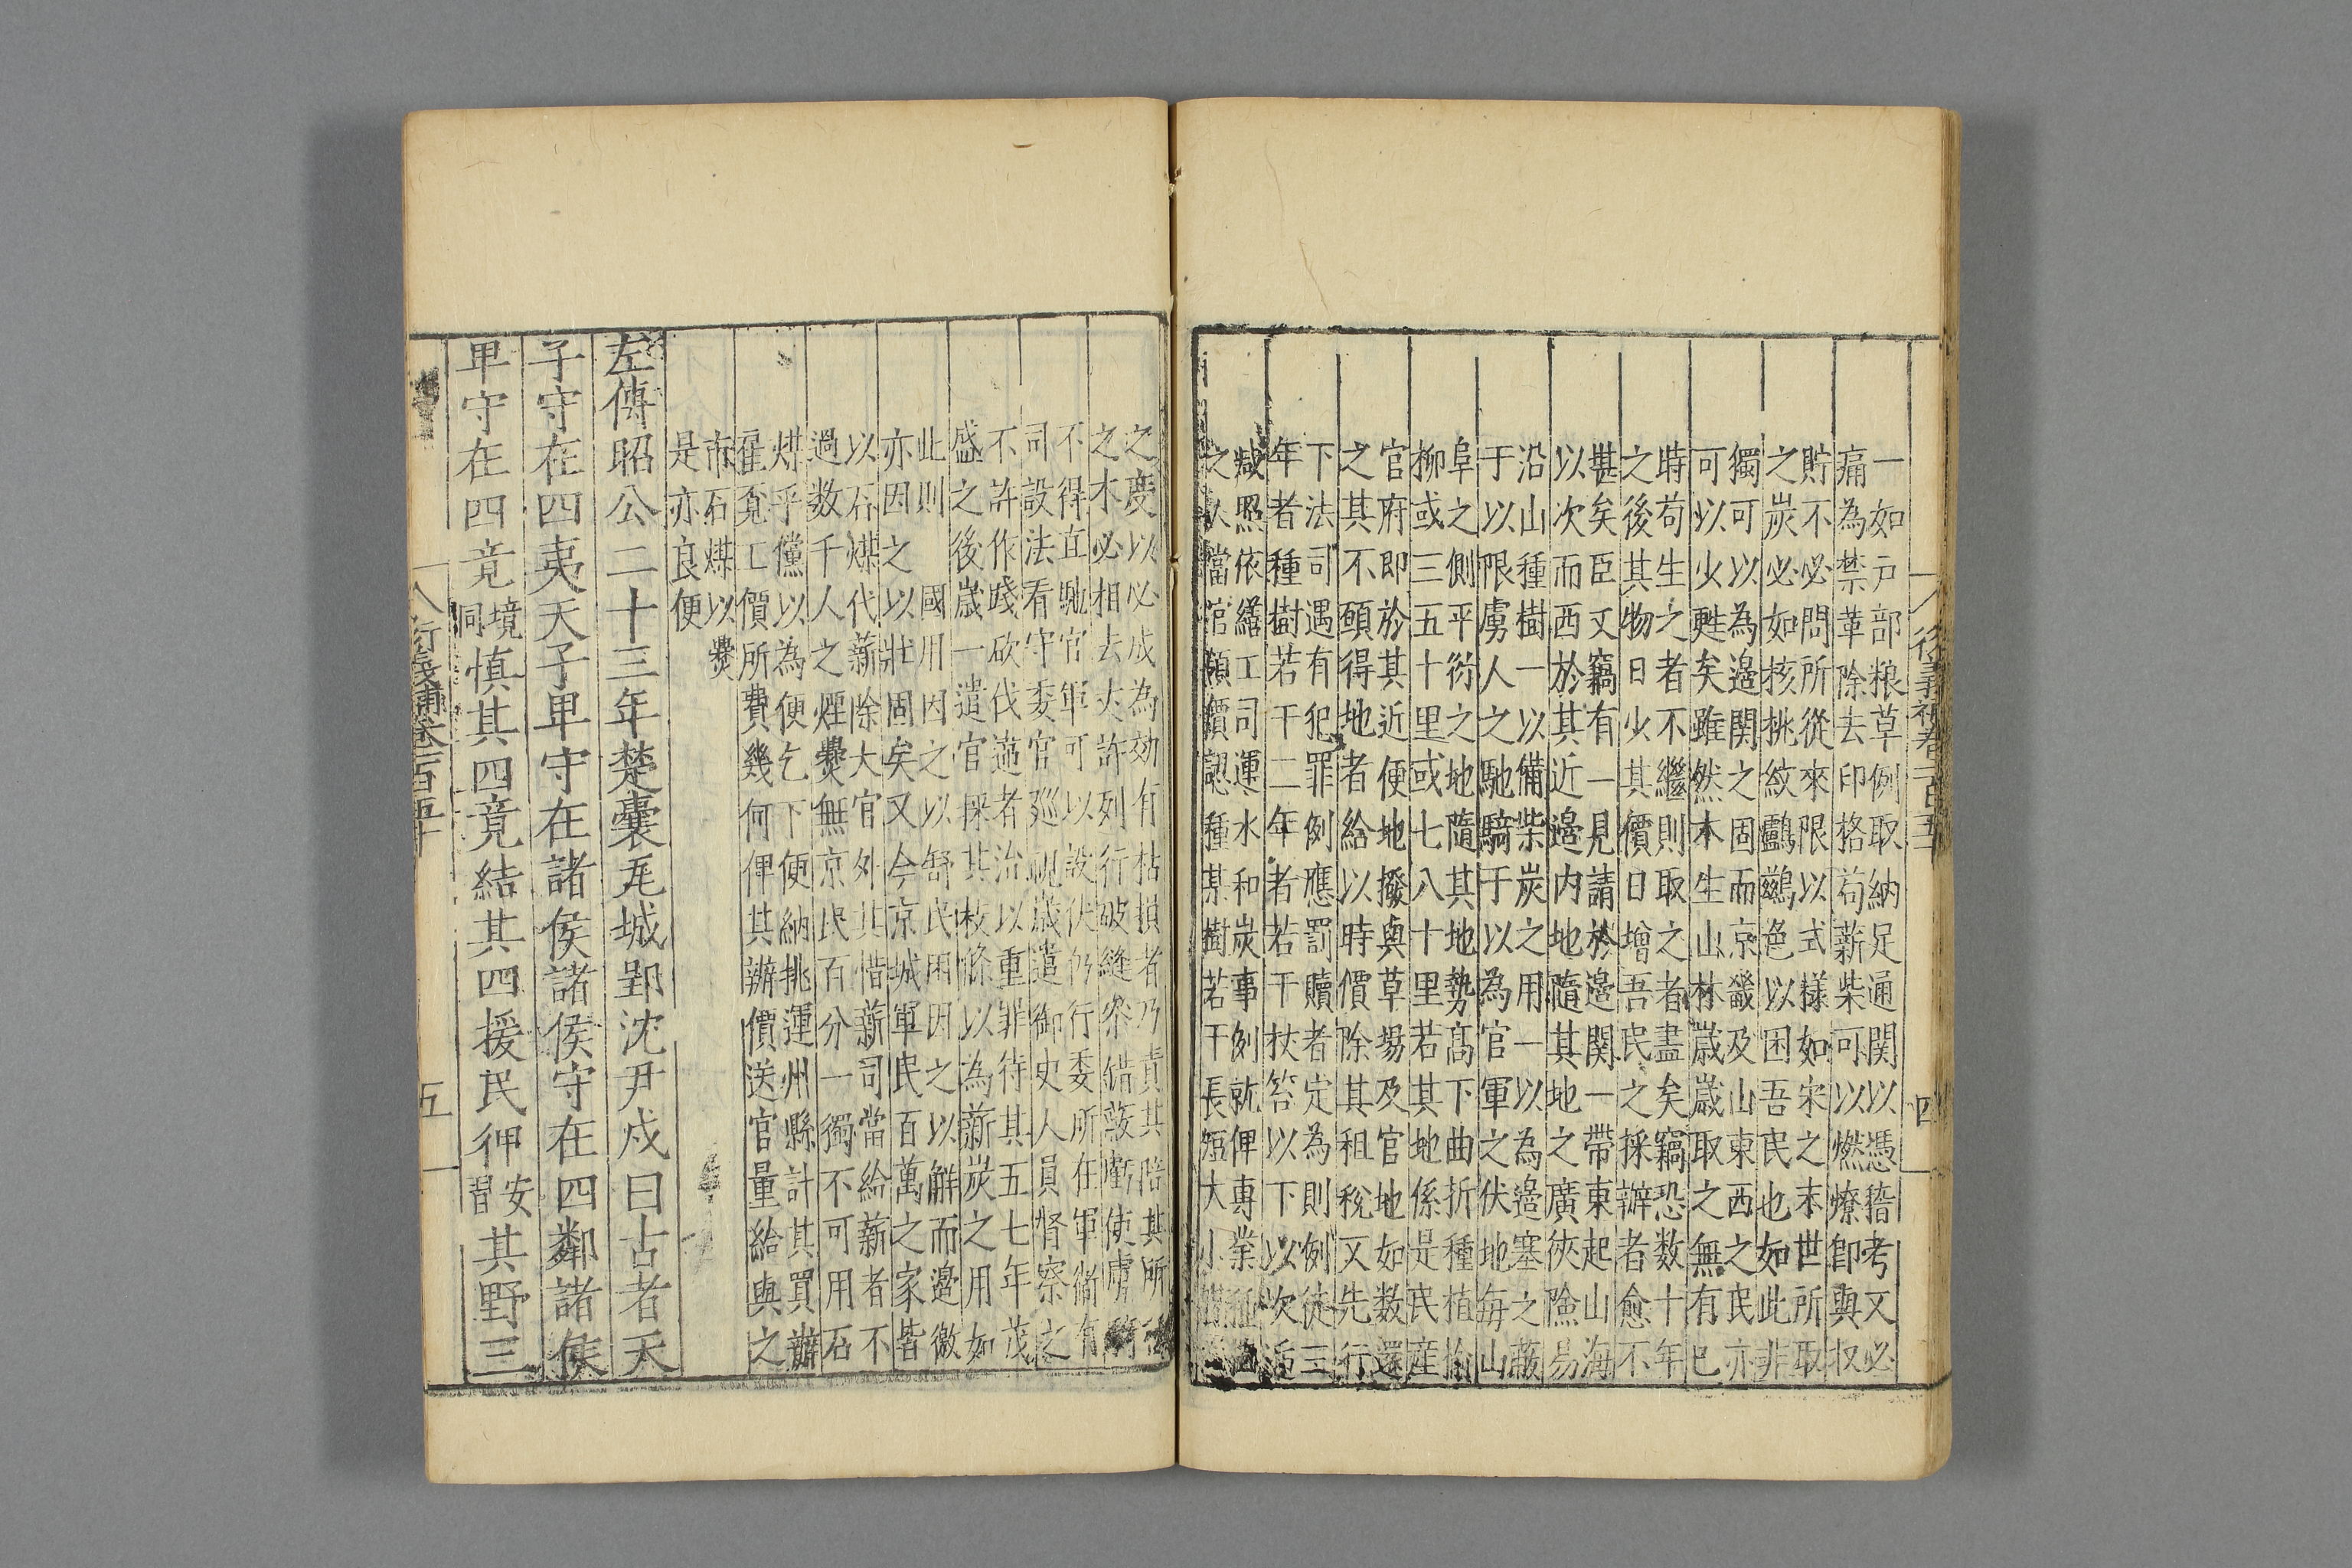 衍義補卷一百五十
四
一如戸部粮草例取納足通関以憑稽考又必
痛為禁革除去印格苟薪柴可以燃燎即與収
貯不必問所從來限以式樣如宋之末世所取
之炭必如核挑紋鸜鵒色以困吾民也如此非
獨可以為邉関之固而京畿及山東西之民亦
可以少甦矣雖然木生山林歳歳取之無有已
時苟生之者不繼則取之者盡矣竊恐数十年
之後其物日少其價日增吾民之採辦者愈不
甚矣臣又竊有一見請於邉関一帶東起山海
以次而西於其近邉内地隨其地之廣狹險易
沿山種樹一以備柴炭之用一以為邉塞之蔽
于以限虜人之馳騎于以為官軍之伏地毎山
阜之側平衍之地隨其地勢髙下曲折種植榆
柳或三五十里或七八十里若其地係是民産
官府即於其近便地撥與草場及官地如数還
之其不願得地者給以時價除其租稅又先行
下法司遇有犯罪例應罰贖者定為則例徒三
年者種樹若干二年者若干杖笞以下以次
減照依繕工司運水和炭事例就俾專業
之人當官領價認種某樹若干長短大小
之慶以必成為効有枯損者乃責其陪其所
之木必相去丈許列行破縫參錯蔽虧使虜騎
不得直馳官軍可以設伏仍行委所在軍衛有
司設法看守委官廵視歳遣御史人員督察之
不許作踐砍伐違者治以重罪待其五七年茂
盛之後歳一遣官採其枝條以為薪炭之用如
此則國用因之以舒民困因之以觧而邉徼
亦因之以壯固矣又今京城軍民百萬之家皆
以石煤代薪除大官外其惜薪司當給薪者不
過数千人之烟爨無京民百分一獨不可用石
煤乎儻以為便乞下便納挑運州縣計其買辦
雇覔工價所費幾何俾其辦價送官量給與之
市石煤以爨
是亦良便
左傳昭公二十三年楚囊瓦城郢沈尹戍曰古者天
子守在四夷天子卑守在諸侯諸侯守在四鄰諸侯
卑守在四竟境同慎其四竟結其四援民狎安習其野三
衍義補卷一百五十
五